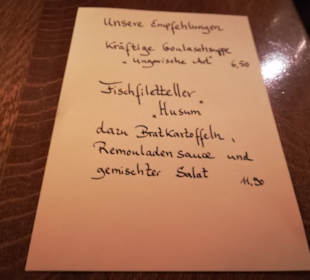 Unsere Empfehlungen
Kräftige Goulaschsuppe
"Ungarische Art" 6,50
Fischfiletteller
"Husum"
dazu Bratkartoffeln,
Remouladensauce und
gemischter Salat 11,90